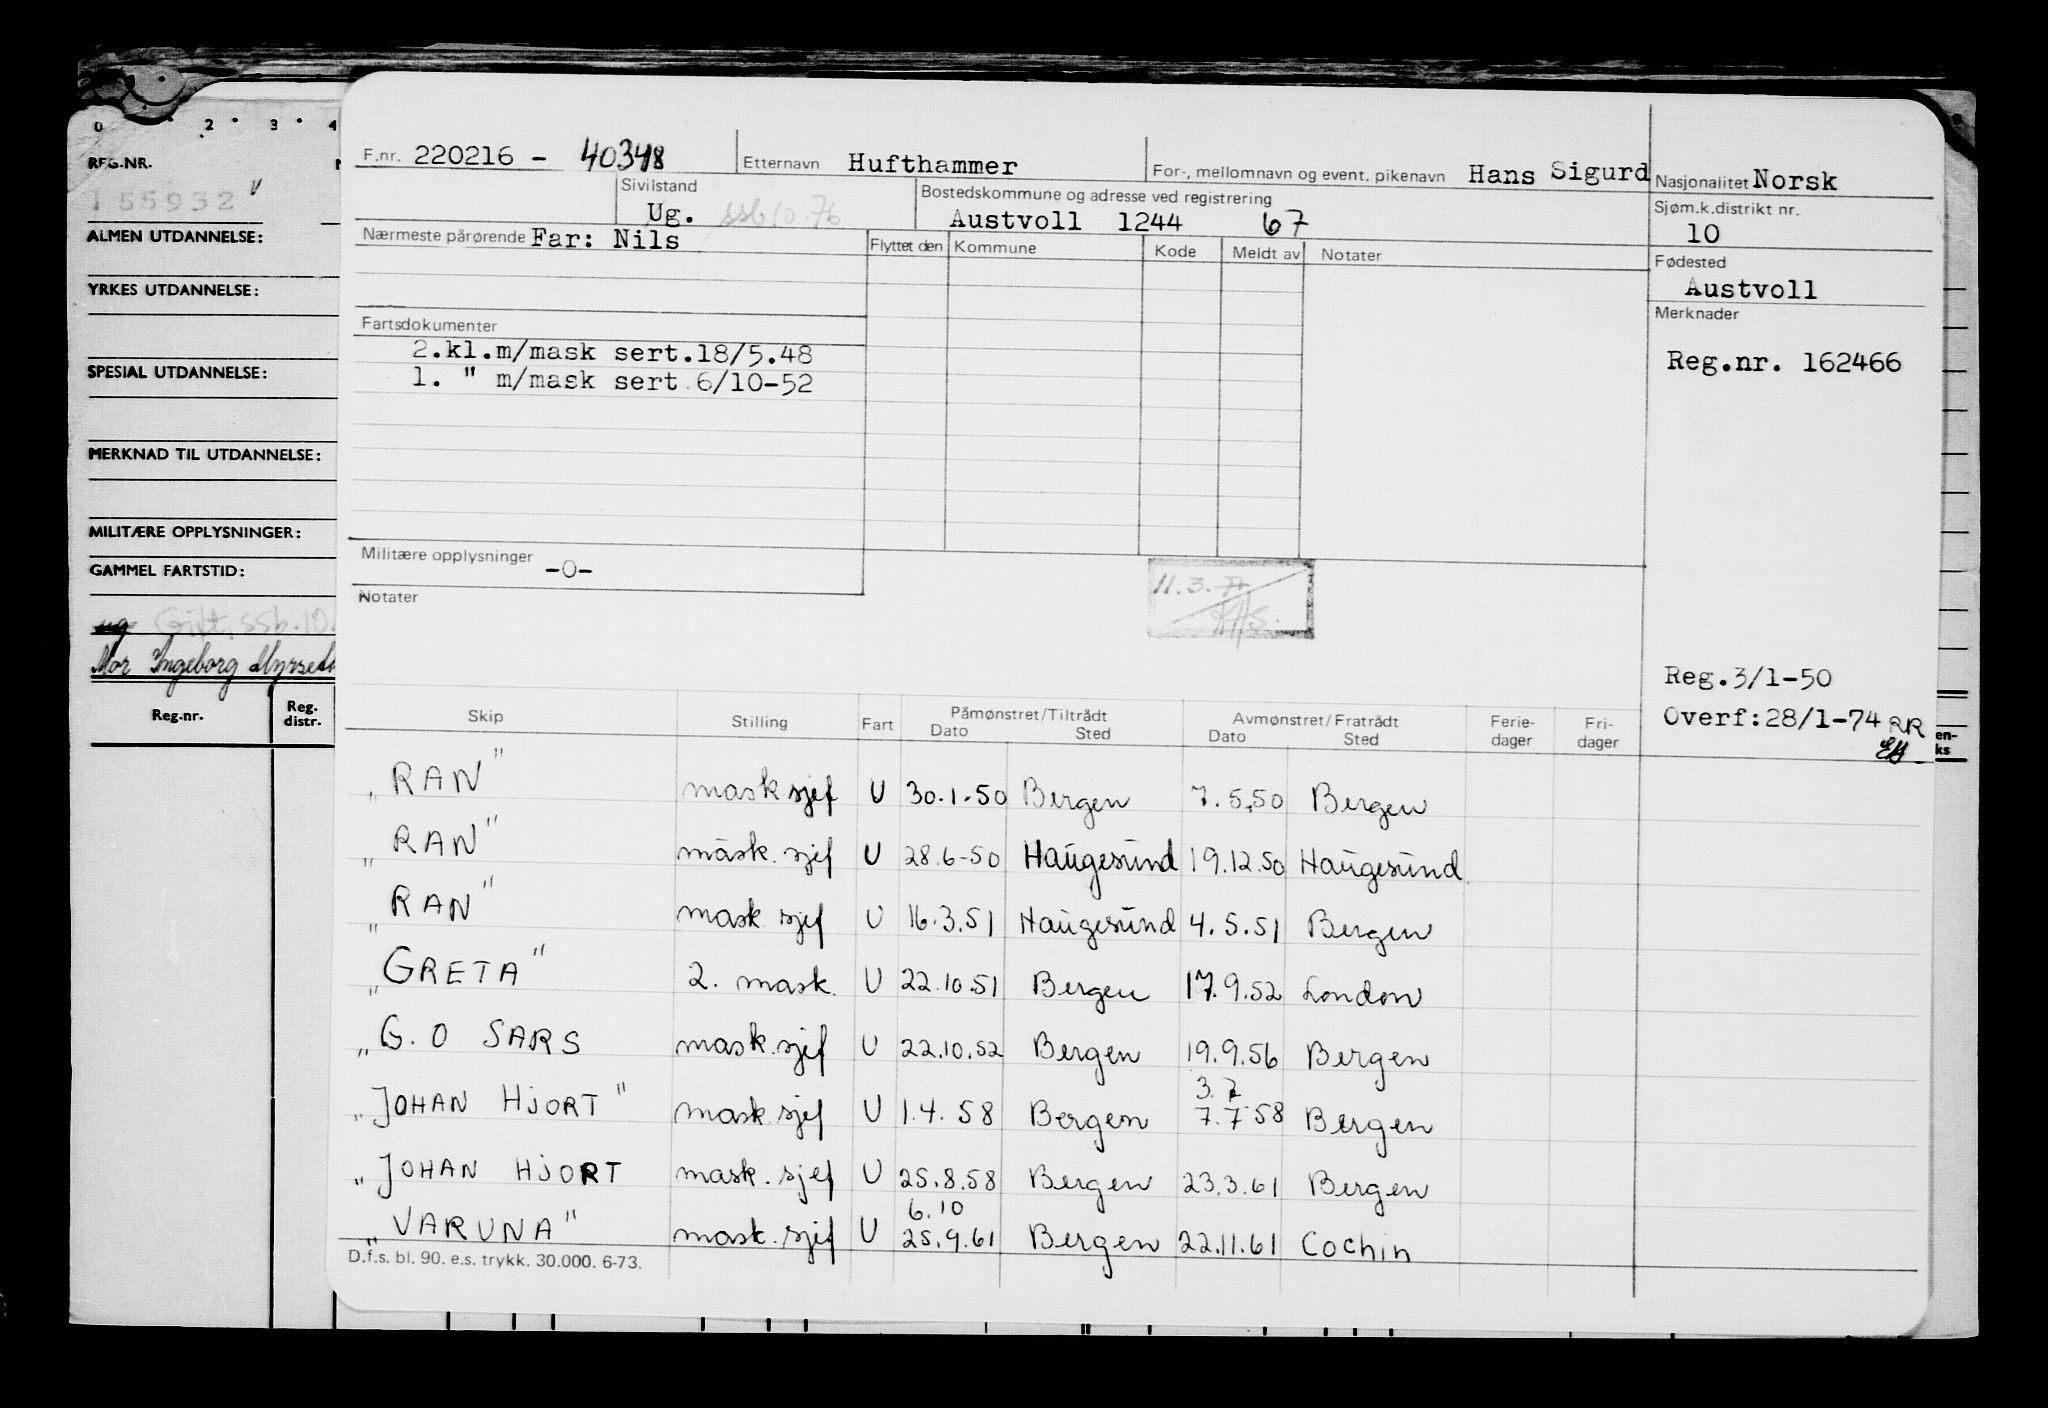 0 2 3 4
REG.NR.
155932
ALMEN UTDANNELSE:
YRKES UTDANNELSE:
SPESIAL UTDANNELSE:
MERKNAD TIL UTDANNELSE:
MILITÆRE OPPLYSNINGER:
GAMMEL FARTSTID:
ug Gift. ssb.10.
Mor Ingeborg
Reg.nr. Reg. distr.
F.nr. 220216 - 40348 Etternavn Hufthammer For-, mellomnavn og event. pikenavn Hans Sigurd Nasjonalitet Norsk
Sivilstand Ug. ssb 10.76 Bostedskommune og adresse ved registrering Austvoll 1244 67 Sjøm.k.distrikt nr. 10
Nærmeste pårørende Far: Nils Flyttet den Kommune Kode Meldt av Notater Fødested
Austvoll
Merknader
Fartsdokumenter
2.kl.m/mask sert.18/5.48
1. " m/mask sert 6/10-52
Reg.nr. 162466
Militære opplysninger -0-
Notater
11.3.77
Reg.3/1-50
Overf:28/1-74 RR
en-
ks
Skip Stilling Fart Påmønstret/Tiltrådt Dato Sted Avmønstret/Fratrådt Dato Sted Ferie-dager Fri-dager
„RAN" mask sjef U 30.1.50 Bergen 7.5.50 Bergen
„RAN" mask. sjef U 28.6-50 Haugesund 19.12.50 Haugesund
„RAN" mask sjef U 16.3.51 Haugesund 4.5.51 Bergen
„GRETA" 2. mask. U 22.10.51 Bergen 17.9.52 London
„G.O SARS mask.sjef U 22.10.52 Bergen 19.9.56 Bergen
3.7
„JOHAN HJORT" mask.sjef U 1.4.58 Bergen 7.7 58 Bergen
„JOHAN HJORT mask. sjef U 25.8.58 Bergen 23.3.61 Bergen
6.10
„VARUNA" mask. sjef U 25.9.61 Bergen 22.11.61 Cochin
D.f.s. bl. 90. e.s. trykk. 30.000. 6-73.